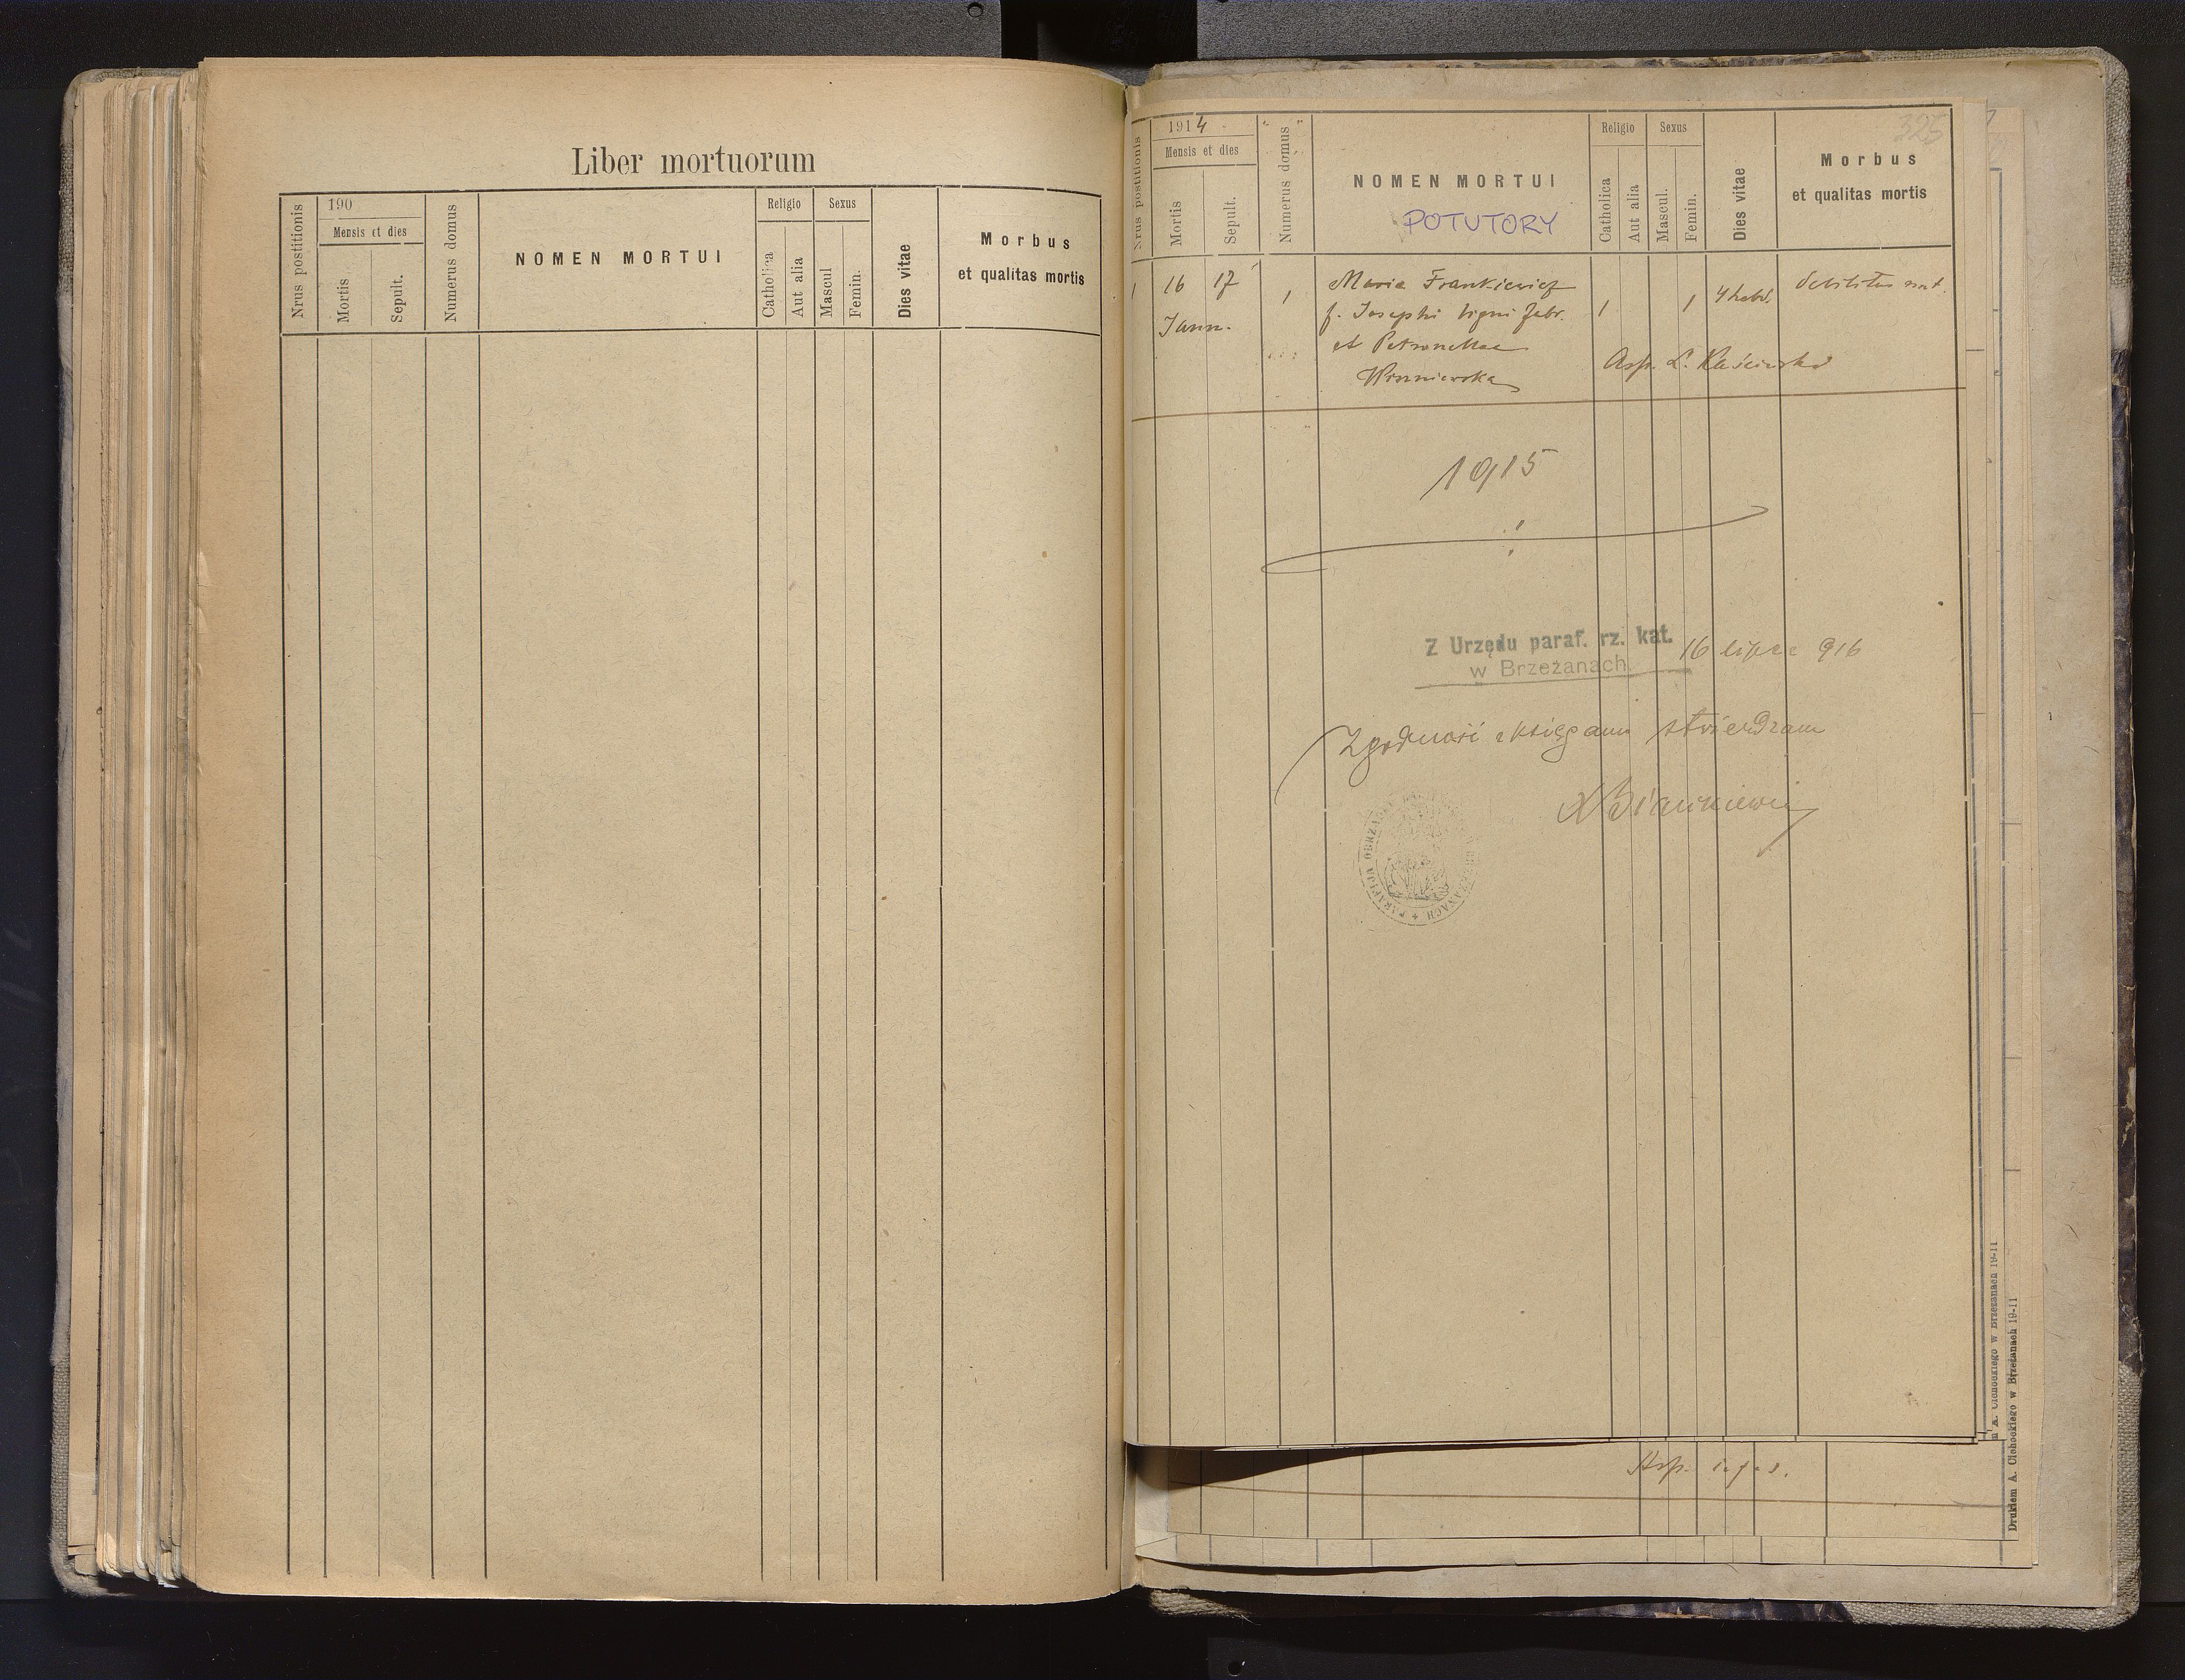 Liber mortuorum
Nrus postitionis
190
Mensis et dies
Mortis
Sepult.
Numerus domus
NOMEN MORTUI
Religio
Catholica
Aut alia
Sexus
Mascul
Femin.
Dies vitae
Morbus
et qualitas mortis
325
Nrus postitionis
1914
Mensis et dies
Mortis
Sepult.
Numerus domus
NOMEN MORTUI
POTUTORY
Religio
Catholica
Aut alia
Sexus
Mascul.
Femin.
Dies vitae
Morbus
et qualitas mortis
1 16 17 1 Maria Frankiewicz 1 1 4 hebd. debilitas nat.
Jann. f. Josephi ligni fabr.
et Petronellae
Wisniewska
Asp. L.
1915
Z Urzędu paraf. rz. kat. 16 lipca 916
w Brzeżanach
Zgodność z księgami stwierdzam
PARAFIJA OBRZĄDKU BRZEŻANACH
Asp.
A. Cichockiego w Brzeżanach 19-11
Drukiem A. Cichockiego w Brzeżanach 19-11